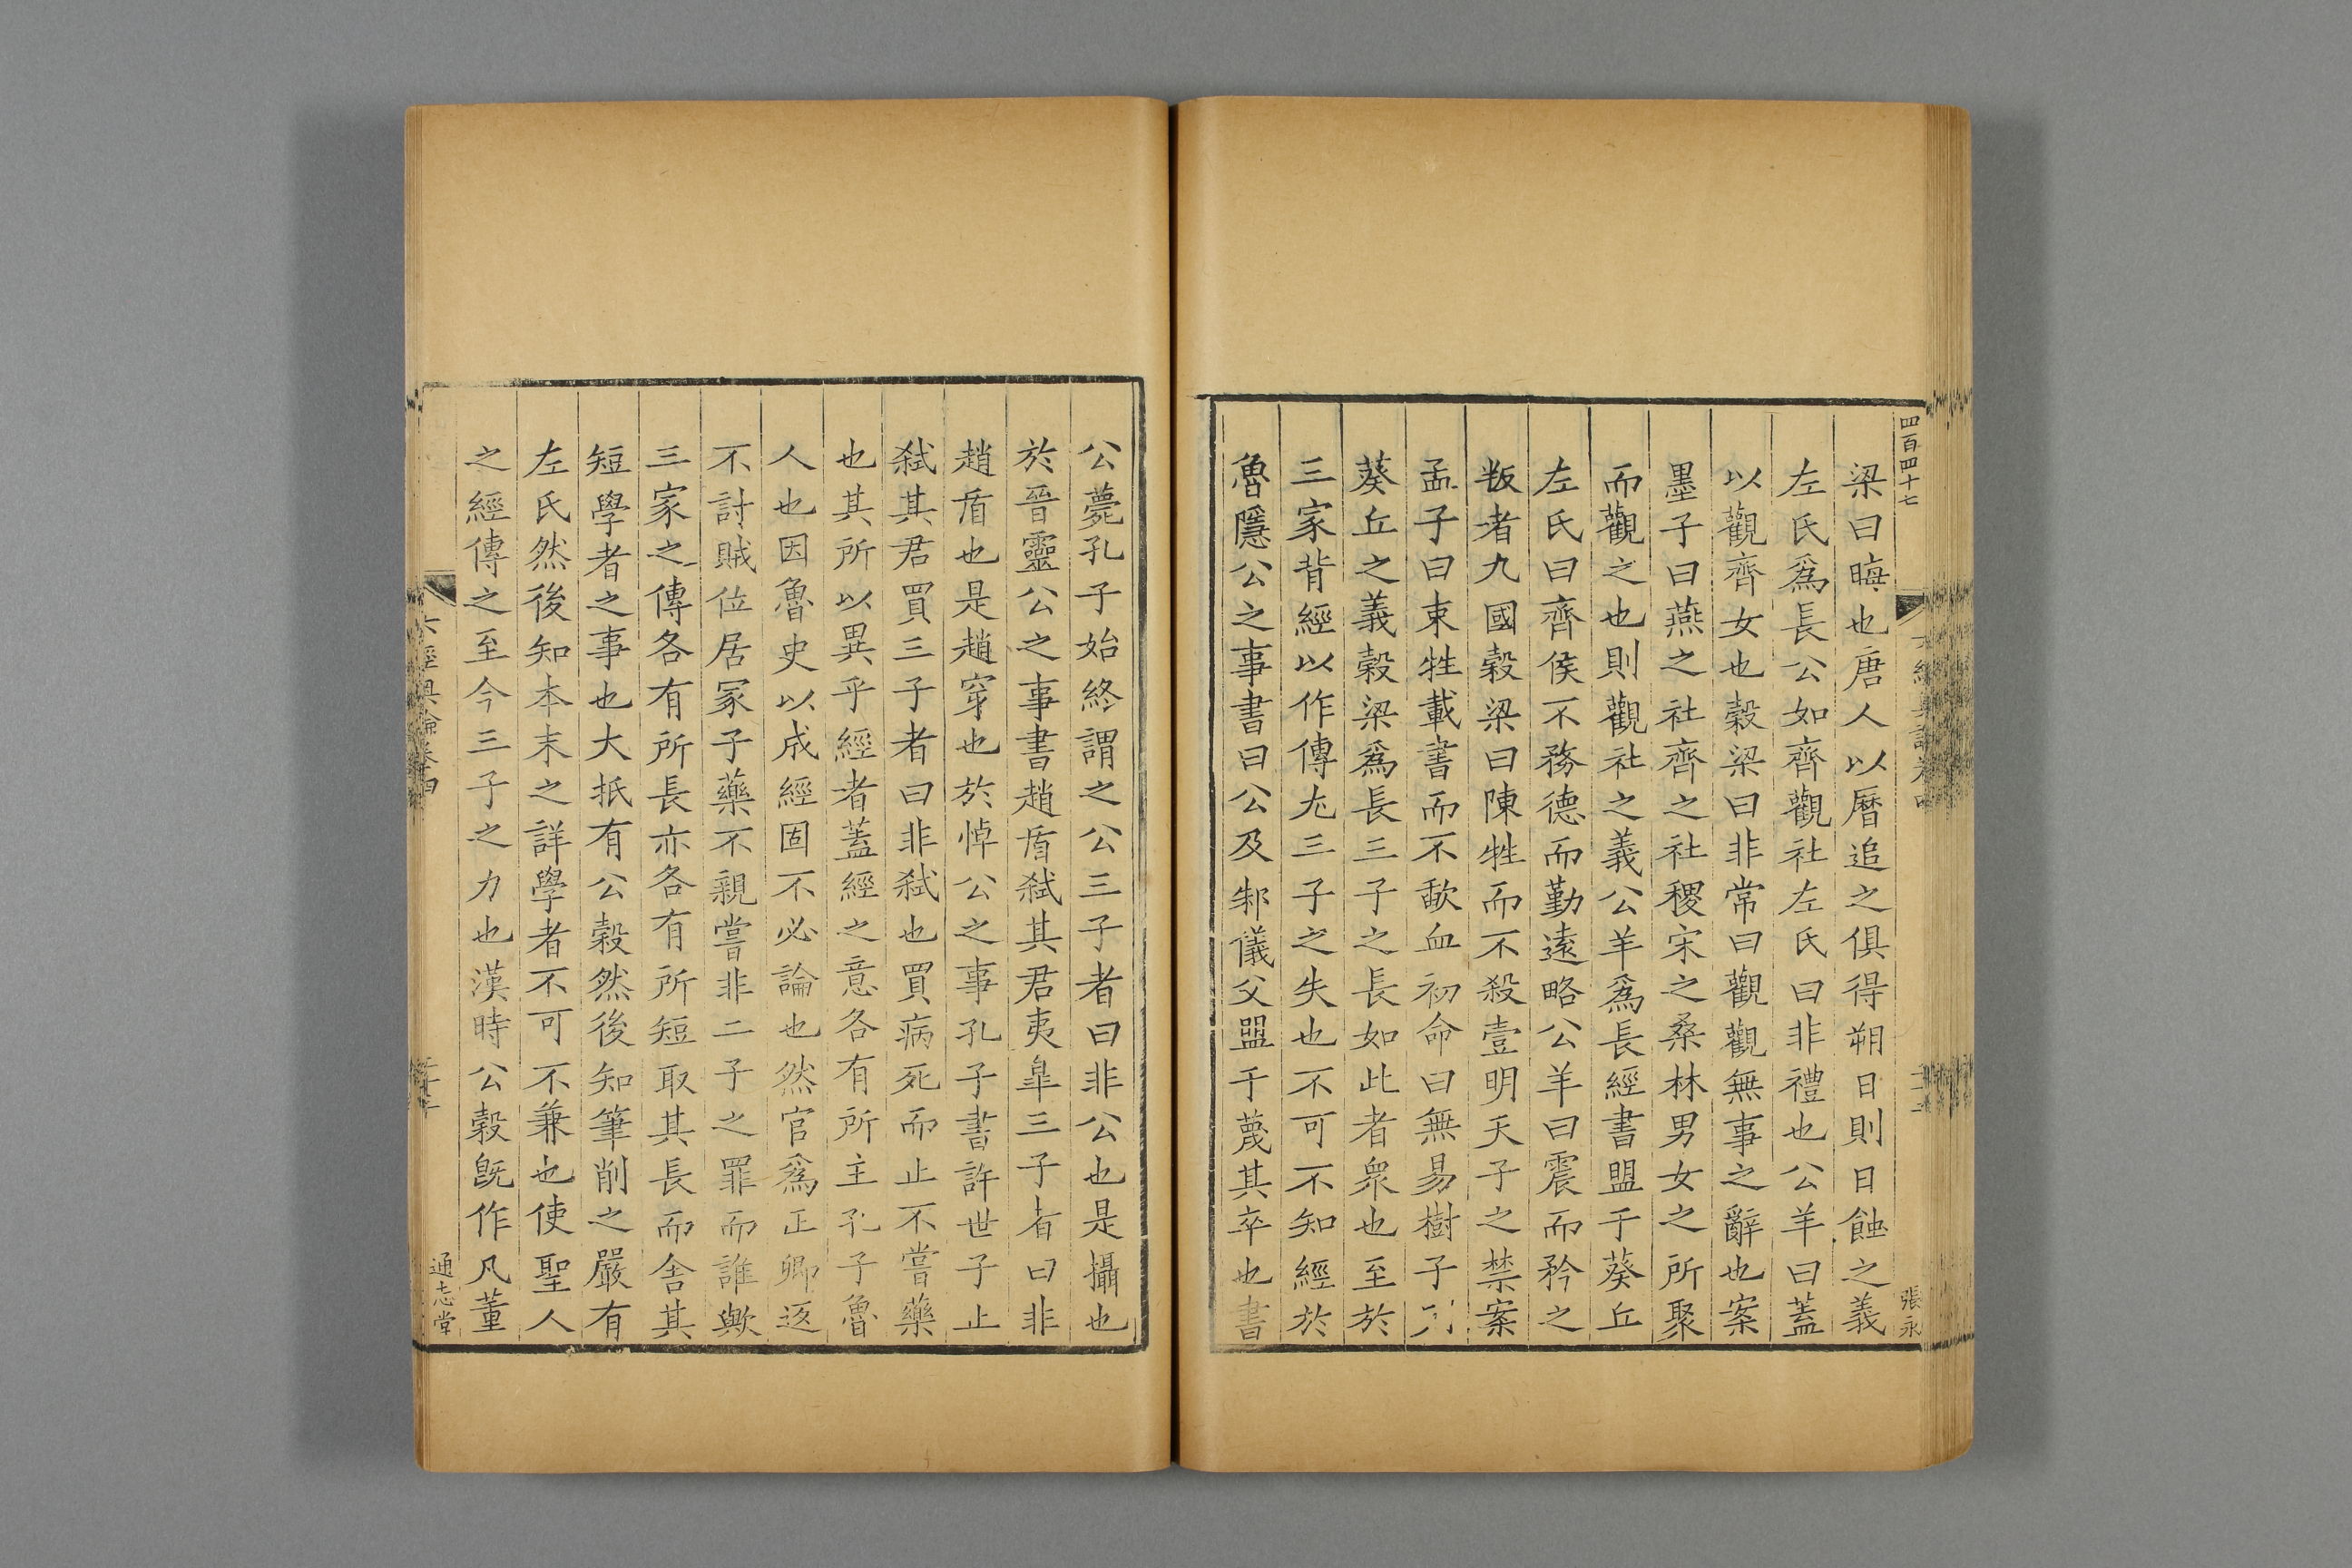 四百四十七
張永
梁曰晦也唐人以曆追之俱得朔日則日蝕之義
左氏爲長公如齊觀社左氏曰非禮也公羊曰蓋
以觀齊女也穀梁曰非常曰觀觀無事之辭也案
墨子曰燕之社齊之社稷宋之桑林男女之所聚
而觀之也則觀社之義公羊爲長經書盟于葵丘
左氏曰齊侯不務德而勤遠略公羊曰震而矜之
叛者九國穀梁曰陳牲而不殺壹明天子之禁案
孟子曰束牲載書而不歃血初命曰無易樹子則
葵丘之義穀梁爲長三子之長如此者衆也至於
三家背經以作傳尤三子之失也不可不知經於
魯隱公之事書曰公及邾儀父盟于蔑其卒也書
公薨孔子始終謂之公三子者曰非公也是攝也
於晉靈公之事書趙盾弒其君夷皐三子者曰非
趙盾也是趙穿也於悼公之事孔子書許世子止
弒其君買三子者曰非弒也買病死而止不嘗藥
也其所以異乎經者蓋經之意各有所主孔子魯
人也因魯史以成經固不必論也然官爲正卿返
不討賊位居冢子藥不親嘗非二子之罪而誰歟
三家之傳各有所長亦各有所短取其長而舍其
短學者之事也大抵有公穀然後知筆削之嚴有
左氏然後知本末之詳學者不可不兼也使聖人
之經傳之至今三子之力也漢時公穀旣作凡董
六經奧論卷四
通志堂